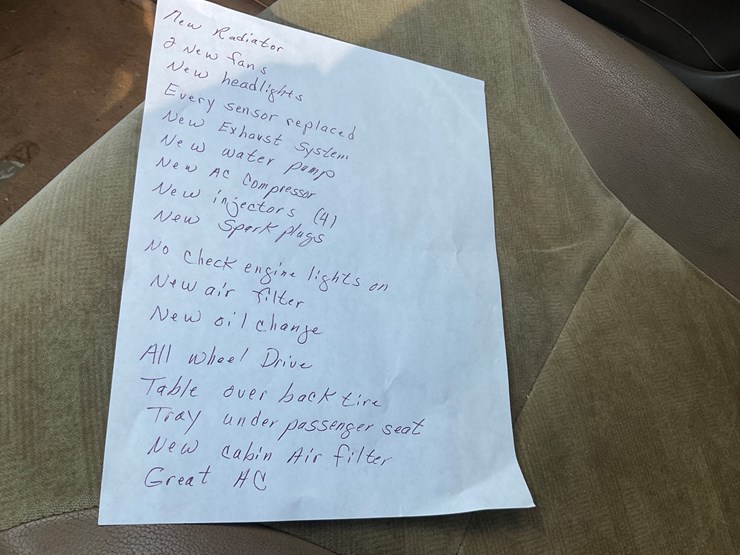 New Radiator
2 New fans
New headlights
Every sensor replaced
New Exhaust System
New water pump
New AC Compressor
New injectors (4)
New Spark plugs
No Check engine lights on
New air filter
New oil change
All wheel Drive
Table over back tire
Tray under passenger seat
New cabin Air filter
Great AC